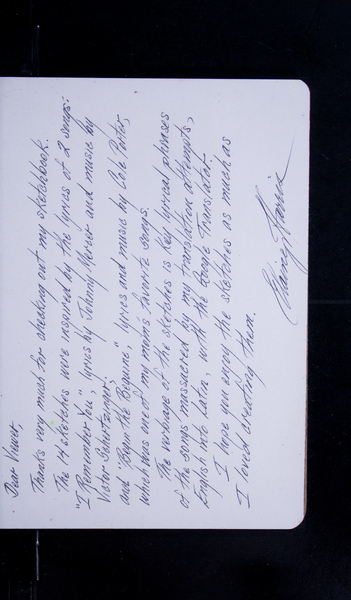 Dear Viewer,
Thanks very much for checking out my sketchbook.
The 14 sketches were inspired by the lyrics of 2 songs:
"I Remember You", lyrics by Johnny Mercer and music by
Victor Schertzinger;
and "Begin the Beguine," lyrics and music by Cole Porter,
which was one of my mom's favorite songs.
The verbiage of the sketches is key lyrical phrases
of the songs massacred by my translation attempts,
English into Latin, with the Google Translator.
I hope you enjoy the sketches as much as
I loved creating them.